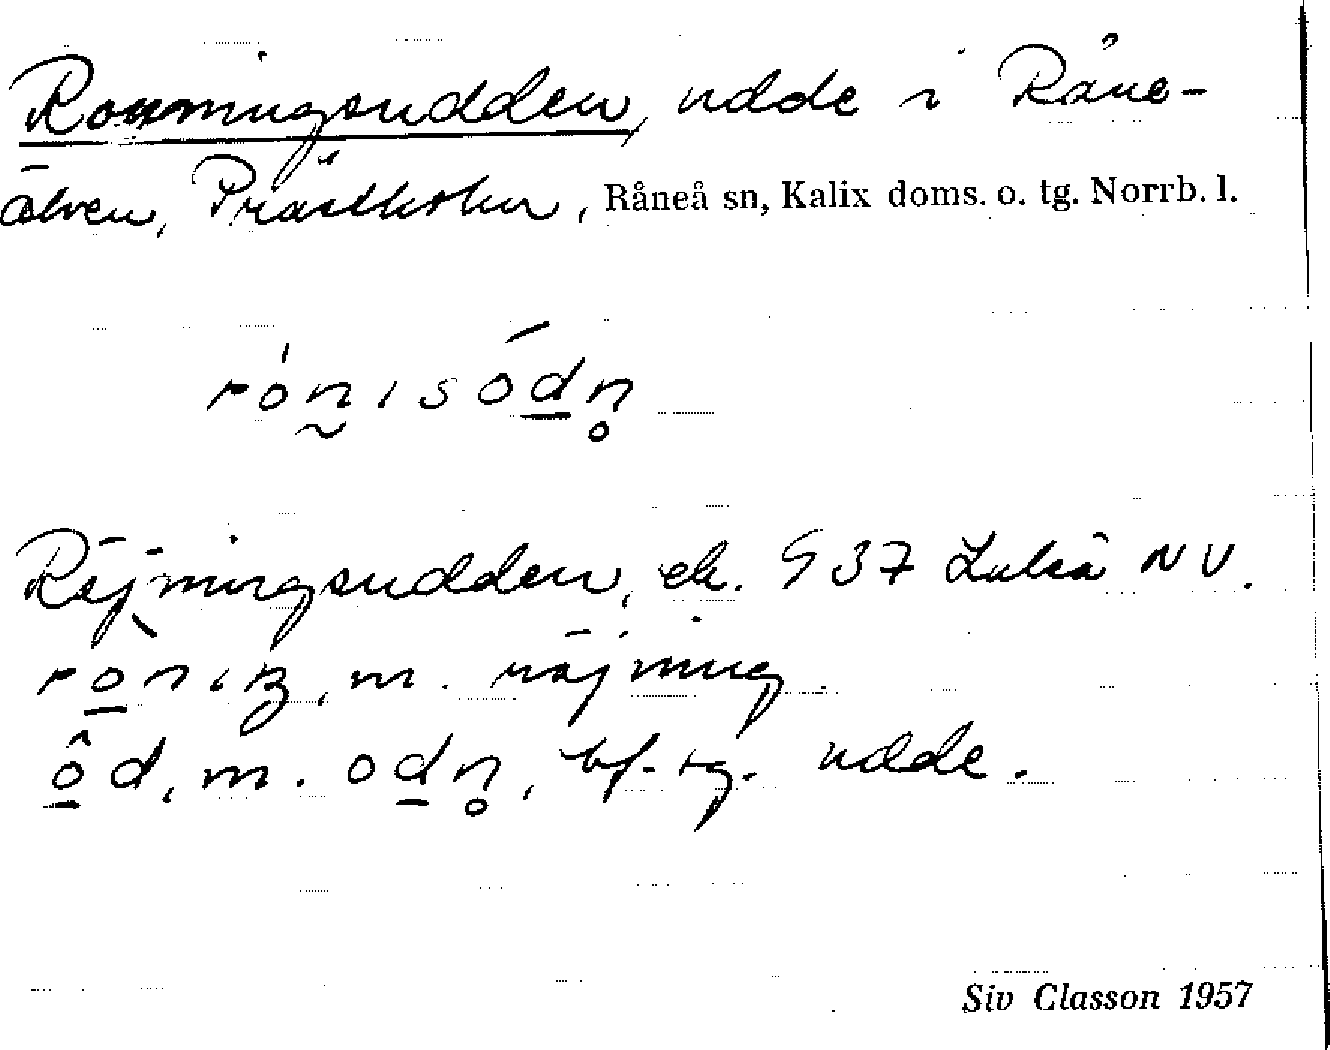 Ronningsudden, udde i Råne-
älven, Prästholm, Råneå sn, Kalix doms. o. tg. Norrb. l.
rónısódn̥
Röjningsudden, ek. S 37 Luleå NV.
ronıŋ, m. röjning.
ôd, m. odn̥, bf. sg. udde.
Siv Classon 1957